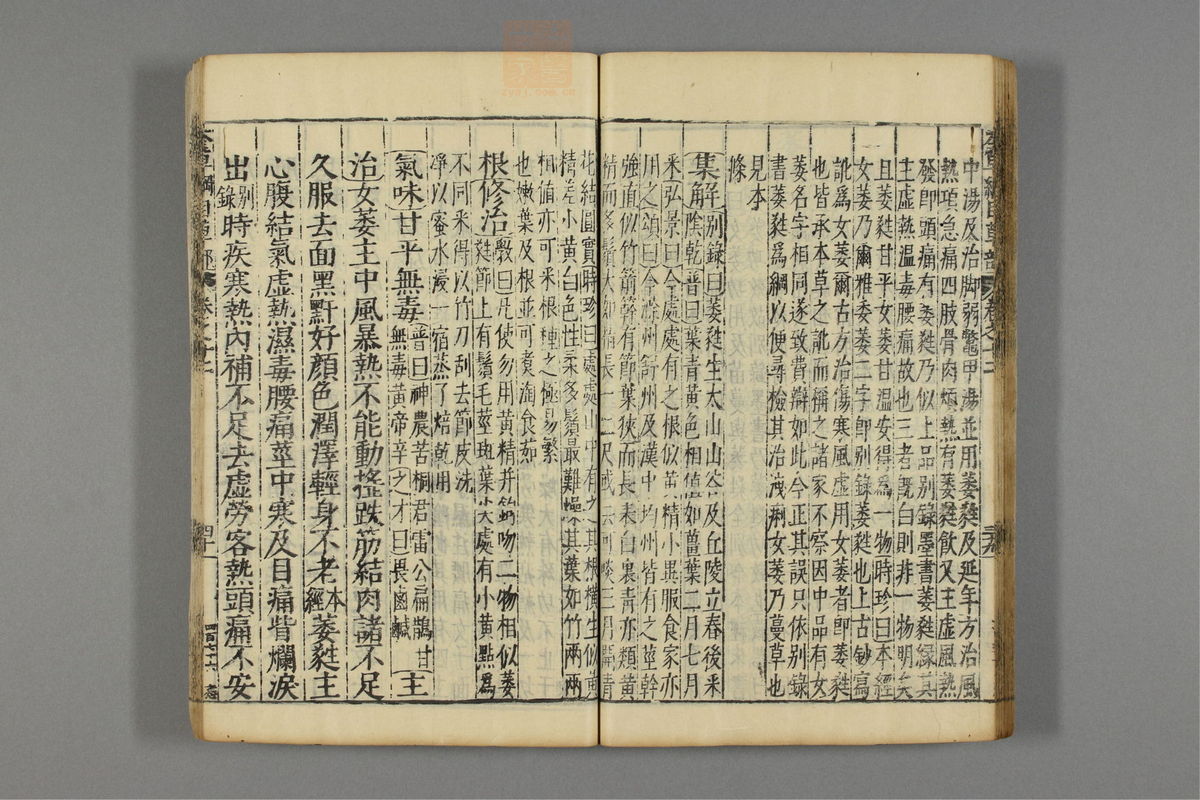 中湯及治脚弱鱉甲湯並用萎蕤及延年方治風
熱項急痛四肢骨肉煩熱有萎蕤飲又主虛風熱
發即頭痛有萎蕤丸似上品別錄墨書萎蕤緣其
主虛熱溫毒腰痛故也三者既白則非一物明矣
且萎蕤甘平女萎甘溫安得爲一物時珍曰本經
女萎乃爾雅委萎二字即別錄萎蕤也上古鈔寫
訛爲女萎爾古方治傷寒風虛用女萎者即萎蕤
也皆承本草之訛而稱之諸家不察因中品有女
萎名字相同遂致費辯如此今正其誤只依別錄
書萎蕤爲綱以便尋檢其治洩痢女萎乃蔓草也
見本
條
集解別錄曰萎蕤生太山山谷及丘陵立春後采
陰乾普曰葉青黃色相値如薑葉二月七月
采弘景曰今處處有之根似黃精小異服食家亦
用之頌曰今滁州舒州及漢中均州皆有之莖幹
強直似竹箭簳有節葉狹而長表白裏青亦類黃
精而多鬚大如指長一二尺或云可啖三月開青
花結圓實時珍曰處處山中有之其根橫生似黃
精差小黃白色性柔多鬚最難燥其葉如竹兩兩
相值亦可采根種之極易繁
也嫩葉及根並可煮淘食茹
根修治斅曰凡使勿用黃精并鉤吻二物相似萎
蕤節上有鬚毛莖斑葉尖處有小黃點爲
不同采得以竹刀刮去節皮洗
淨以蜜水浸一宿蒸了焙乾用
氣味甘平無毒普曰神農苦桐君雷公扁鵲甘
無毒黃帝辛之才曰畏鹵鹹主
治女萎主中風暴熱不能動搖跌筋結肉諸不足
久服去面黑䵟好顏色潤澤輕身不老本經萎蕤主
心腹結氣虛熱濕毒腰痛莖中寒及目痛眥爛淚
出別錄時疾寒熱內補不足去虛勞客熱頭痛不安